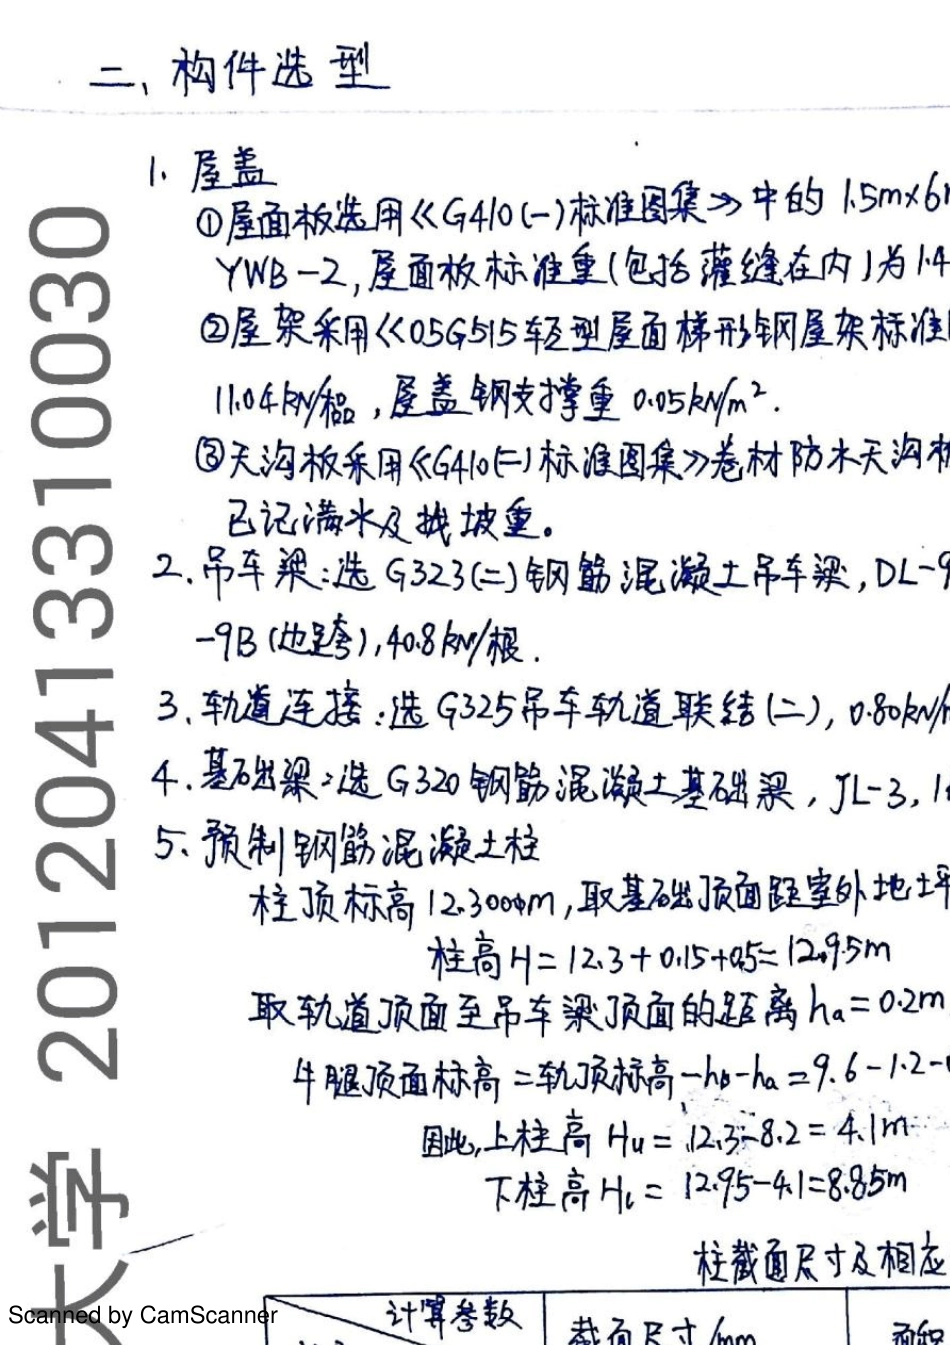 二、构件选型
1. 屋盖
①屋面板选用《G410(一)标准图集》中的 1.5m×6m
YWB-2,屋面板标准重(包括灌缝在内)为1.4
②屋架采用《05G515轻型屋面梯形钢屋架标准
11.04kN/榀,屋盖钢支撑重 0.05kN/m².
③天沟板采用《G410(二)标准图集》卷材防水天沟板
已记满水及找坡重。
2、吊车梁:选 G323(二)钢筋混凝土吊车梁,DL-9
-9B(边跨),40.8kN/根.
3、轨道连接:选 G325吊车轨道联结(二),0.80kN/
4、基础梁:选 G320 钢筋混凝土基础梁,JL-3,1
5、预制钢筋混凝土柱
柱顶标高12.300m,取基础顶面距室外地坪
柱高H=12.3+0.15+0.5=12.95m
取轨道顶面至吊车梁顶面的距离ha=0.2m
牛腿顶面标高=轨顶标高-hb-ha=9.6-1.2-
因此,上柱高Hu=12.3-8.2=4.1m
下柱高Hl=12.95-4.1=8.85m
柱截面尺寸及相应
计算参数
截面尺寸/mm
面积
大学 20120413310030
Scanned by CamScanner